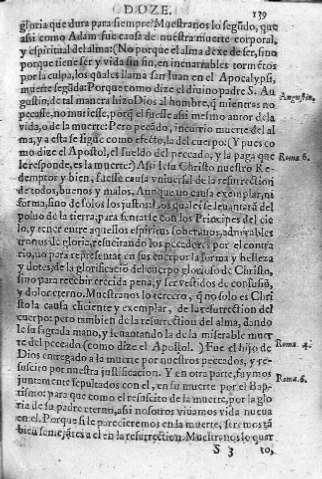 DOZE. 179
gloria que dura para siempre. Muestranos lo segũdo, que
assi como Adam fue causa de nuestra muerte corporal,
y espiritual del alma: (No porque el alma dexe de ser, sino
porque tiene ser y vida sin fin, en incurables tormẽtos
por la culpa, los quales llama san Iuan en el Apocalypsi,
muerte segũda: Porque como dize el divino padre S. Au
gustin, de tal manera hizo Dios al hombre, q̃ mientras no
Augustin.
pecasse, no muriesse, porq̃ el fuesse assi mesmo autor de la
vida, o de la muerte: Pero pecãdo, incurrio muerte del al
ma, y a esta se sigue como efecto, la del cuerpo: (Y pues co
mo dize el Apostol, el sueldo del peccado, y la paga que
Roma. 6.
le responde, es la muerte:) Assi Iesu Christo nuestro Re
demptor y bien, fuesse causa vniuersal de la resurrection
de todos, buenos y malos, Aunque no causa exemplar, ni
forma, sino de solos los justos: los quales se leuantarã del
poluo de la tierra, para sentarse con los Principes del cie
lo, y tener entre aquellos espiritus soberanos, admirables
tronos de gloria, resucitando los pecadores por el contra
rio, no para representar en sus cuerpos la forma y belleza
y dotes, de la glorificació del cuerpo glorioso de Christo,
sino para recebir crecida pena, y ser vestidos de confusiõ,
y dolor eterno. Muestranos lo tercero, q̃ no solo es Chri
sto la causa eficiente y exemplar, de la resurrection del
cuerpo: pero tambien de la resurrection del alma, dando
le su sagrada mano, y leuantando la de la miserable muer
te del peccado (como dize el Apostol.) Fue el hijo de
Roma. 4.
Dios entregado a la muerte por nuestros peccados, y re-
suscito por nuestra justificacion. Y en otra parte, fuymos
juntamente sepultados con el, en su muerte por el Bap-
Roma. 6.
tismo: para que como el resuscito de la muerte, por la glo
ria de su padre eterno, assi nosotros viuamos vida nueua
en el. Porque si le parecieremos en la muerte, seremos tã
bien semejãtes a el en la resurrection. Muestranos lo quar
S 3 to,